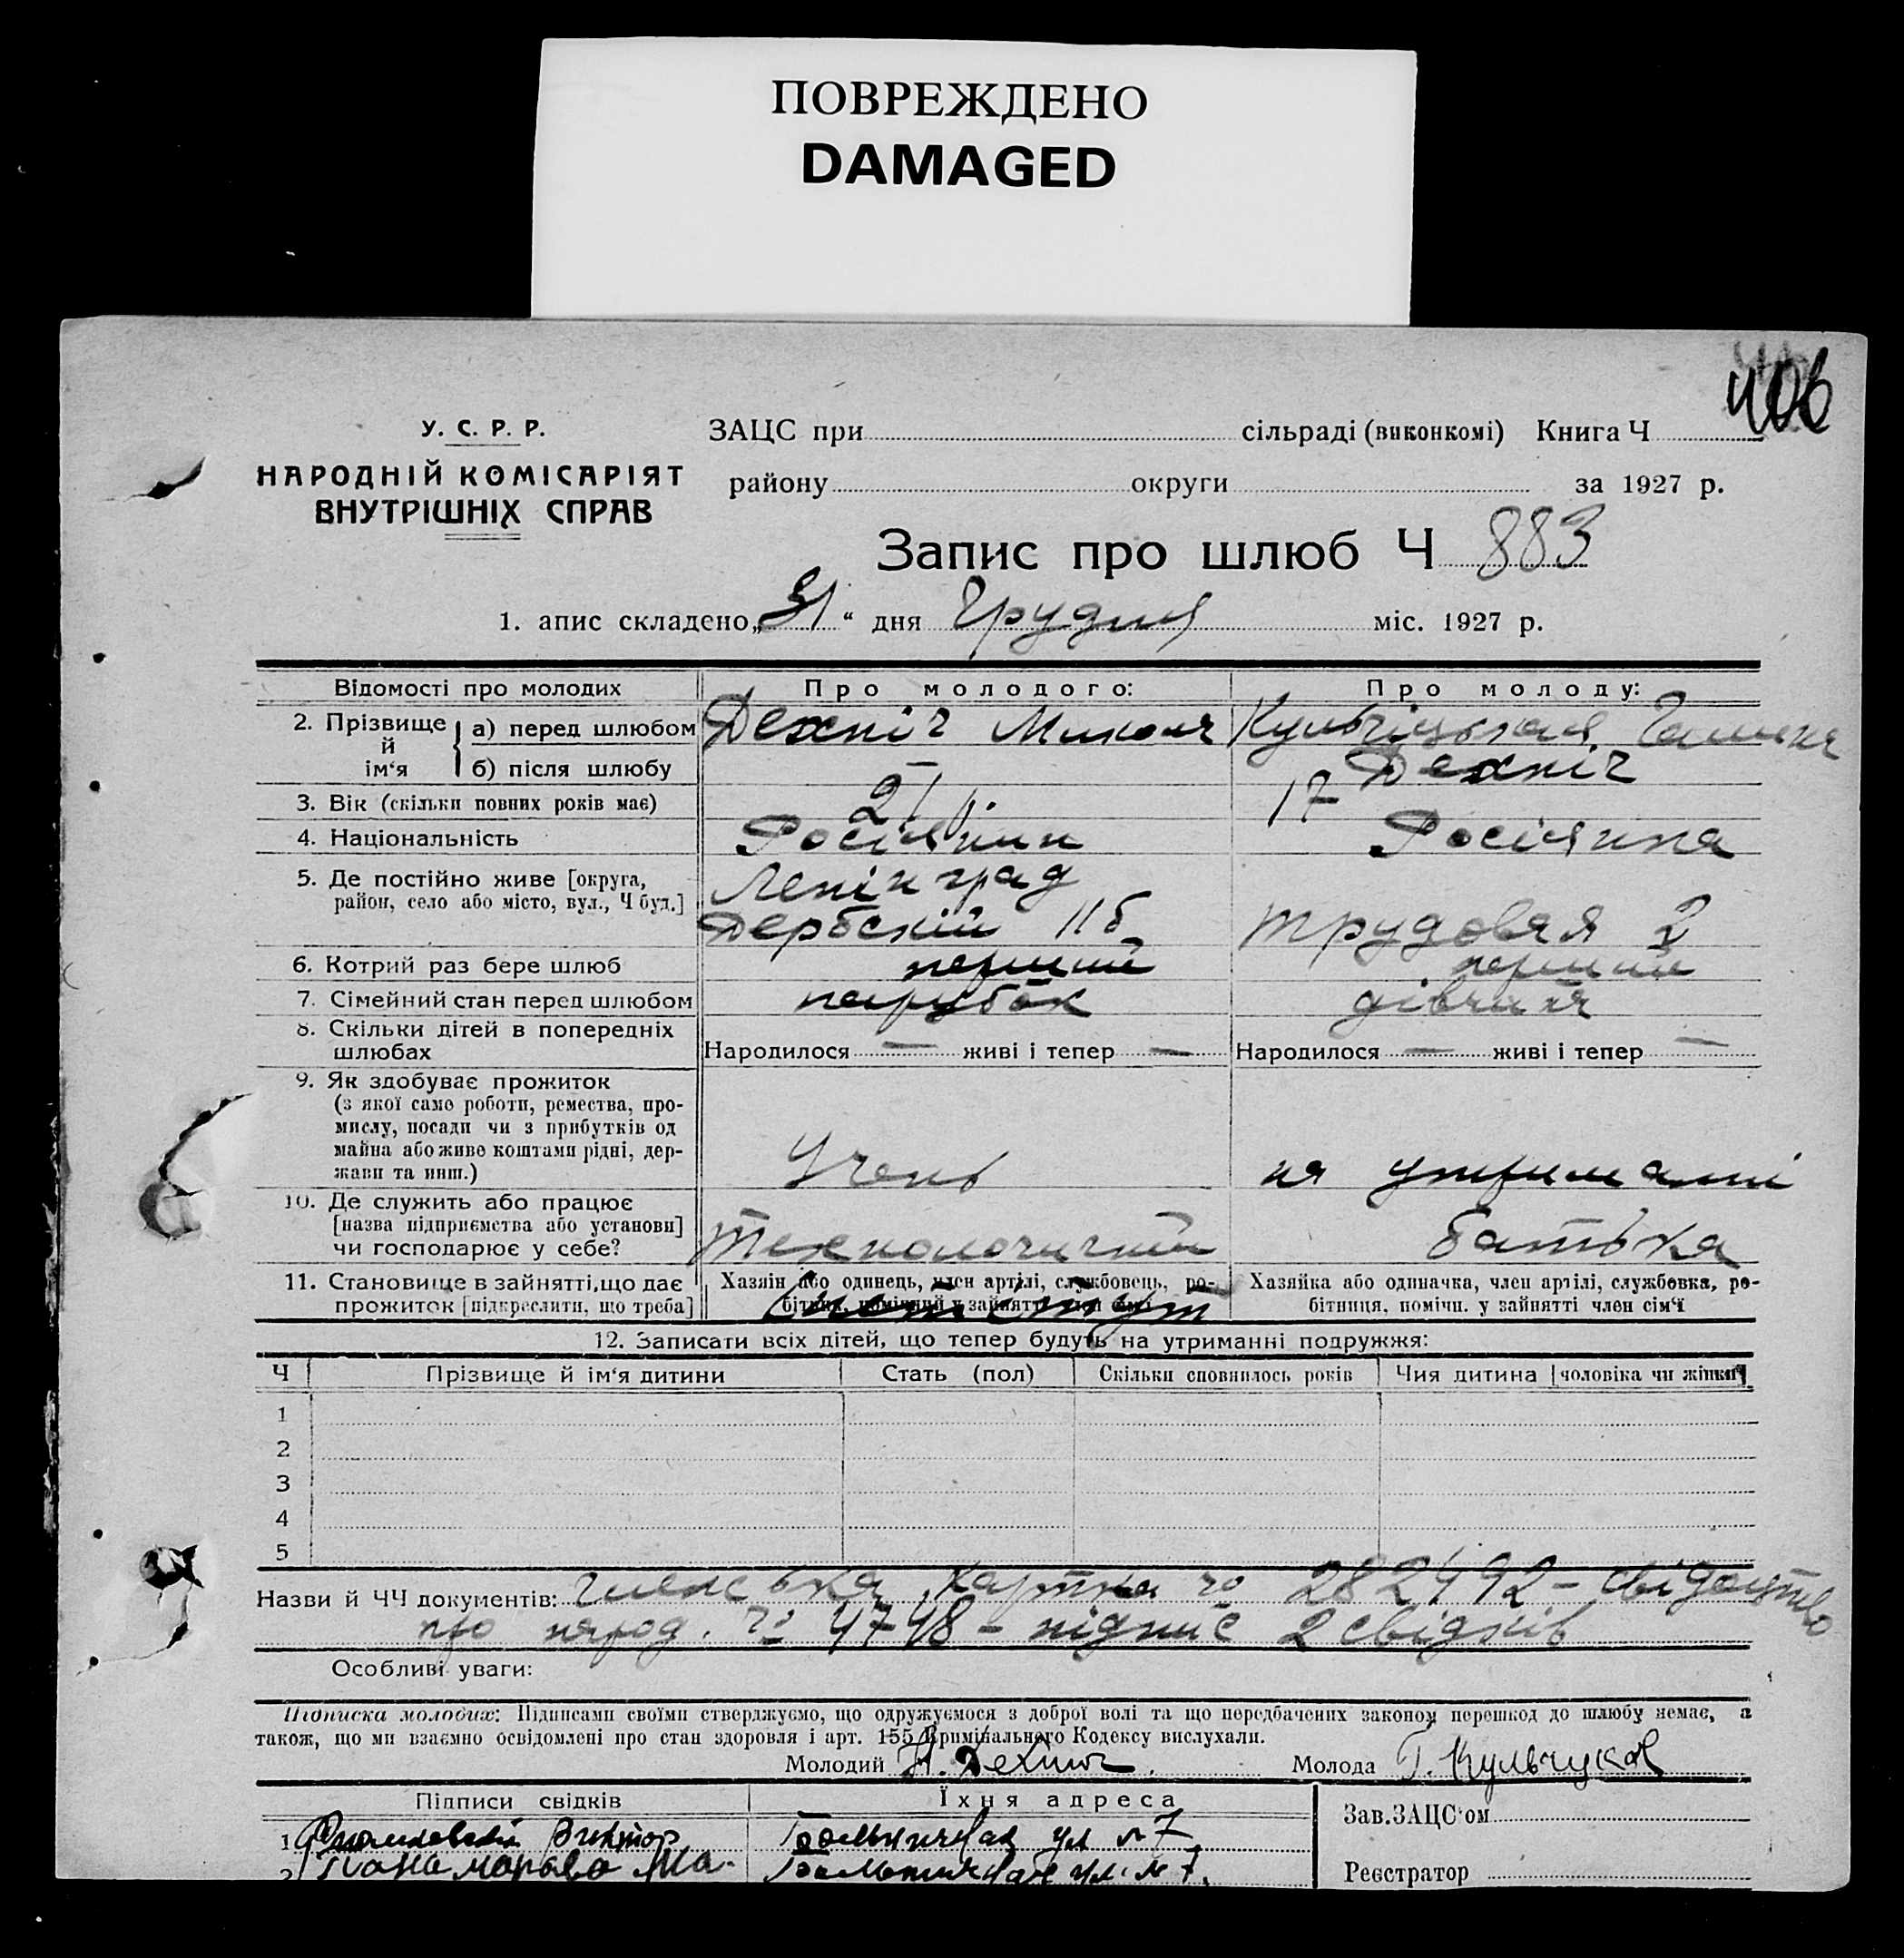 ПОВРЕЖДЕНО
DAMAGED
406
У. С. Р. Р.
НАРОДНІЙ КОМІСАРІЯТ
ВНУТРІШНІХ СПРАВ
ЗАЦС при сільраді (виконкомі) Книга Ч
району округи за 1927 р.
Запис про шлюб Ч 883
1. апис складено „31“ дня Грудня міс. 1927 р.
Відомості про молодих Про молодого: Про молоду:
2. Прізвище й ім‘я
а) перед шлюбом Дехніч Микола Кульчіцькая Галина
б) після шлюбу — Дехніч
3. Вік (скільки повних років має) 21 р. 17
4. Національність Росіянин Росіянка
5. Де постійно живе [округа, Ленінград
район, село або місто, вул., Ч буд.] Дербскій 11б Трудовая 2
6. Котрий раз бере шлюб перший перший
7. Сімейний стан перед шлюбом парубок дівчина
8. Скільки дітей в попередніх
шлюбах Народилося — живі і тепер — Народилося — живі і тепер —
9. Як здобуває прожиток
(з якої само роботи, ремества, про-
мислу, посади чи з прибутків од
майна або живе коштами рідні, дер-
жави та инш.) Учень на утриманні
10. Де служить або працює
[назва підприємства або установи]
чи господарює у себе? Технологичний батька
11. Становище в зайнятті, що дає Хазяін або одинець, член артілі, службовець, ро- Хазяйка або одиначка, член артілі, службовка, ро-
прожиток [підкреслити, що треба] бітник, помічний у зайнятті член сім‘ї бітниця, помічн. у зайнятті член сім‘ї
12. Записати всіх дітей, що тепер будуть на утриманні подружжя:
Ч Прізвище й ім‘я дитини Стать (пол) Скільки сповнилось років Чия дитина [чоловіка чи жінки]
1
2
3
4
5
Назви й ЧЧ документів: членська картка ч° 282492 - свідоцтво
про народ. ч° 4748 - підпис 2 свідків
Особливі уваги:
Підписка молодих: Підписами своїми стверджуємо, що одружуємося з доброї волі та що передбачених законом перешкод до шлюбу немає, а
також, що ми взаємно освідомлені про стан здоровля і арт. 155 Кримінального Кодексу вислухали.
Молодий Н. Дехнич. Молода Г. Кульчицкая
Підписи свідків Їхня адреса
1 Виктор Больничная ул № 7
2 Понаморева Больничная ул. № 7.
Зав. ЗАЦС‘ом
Реєстратор